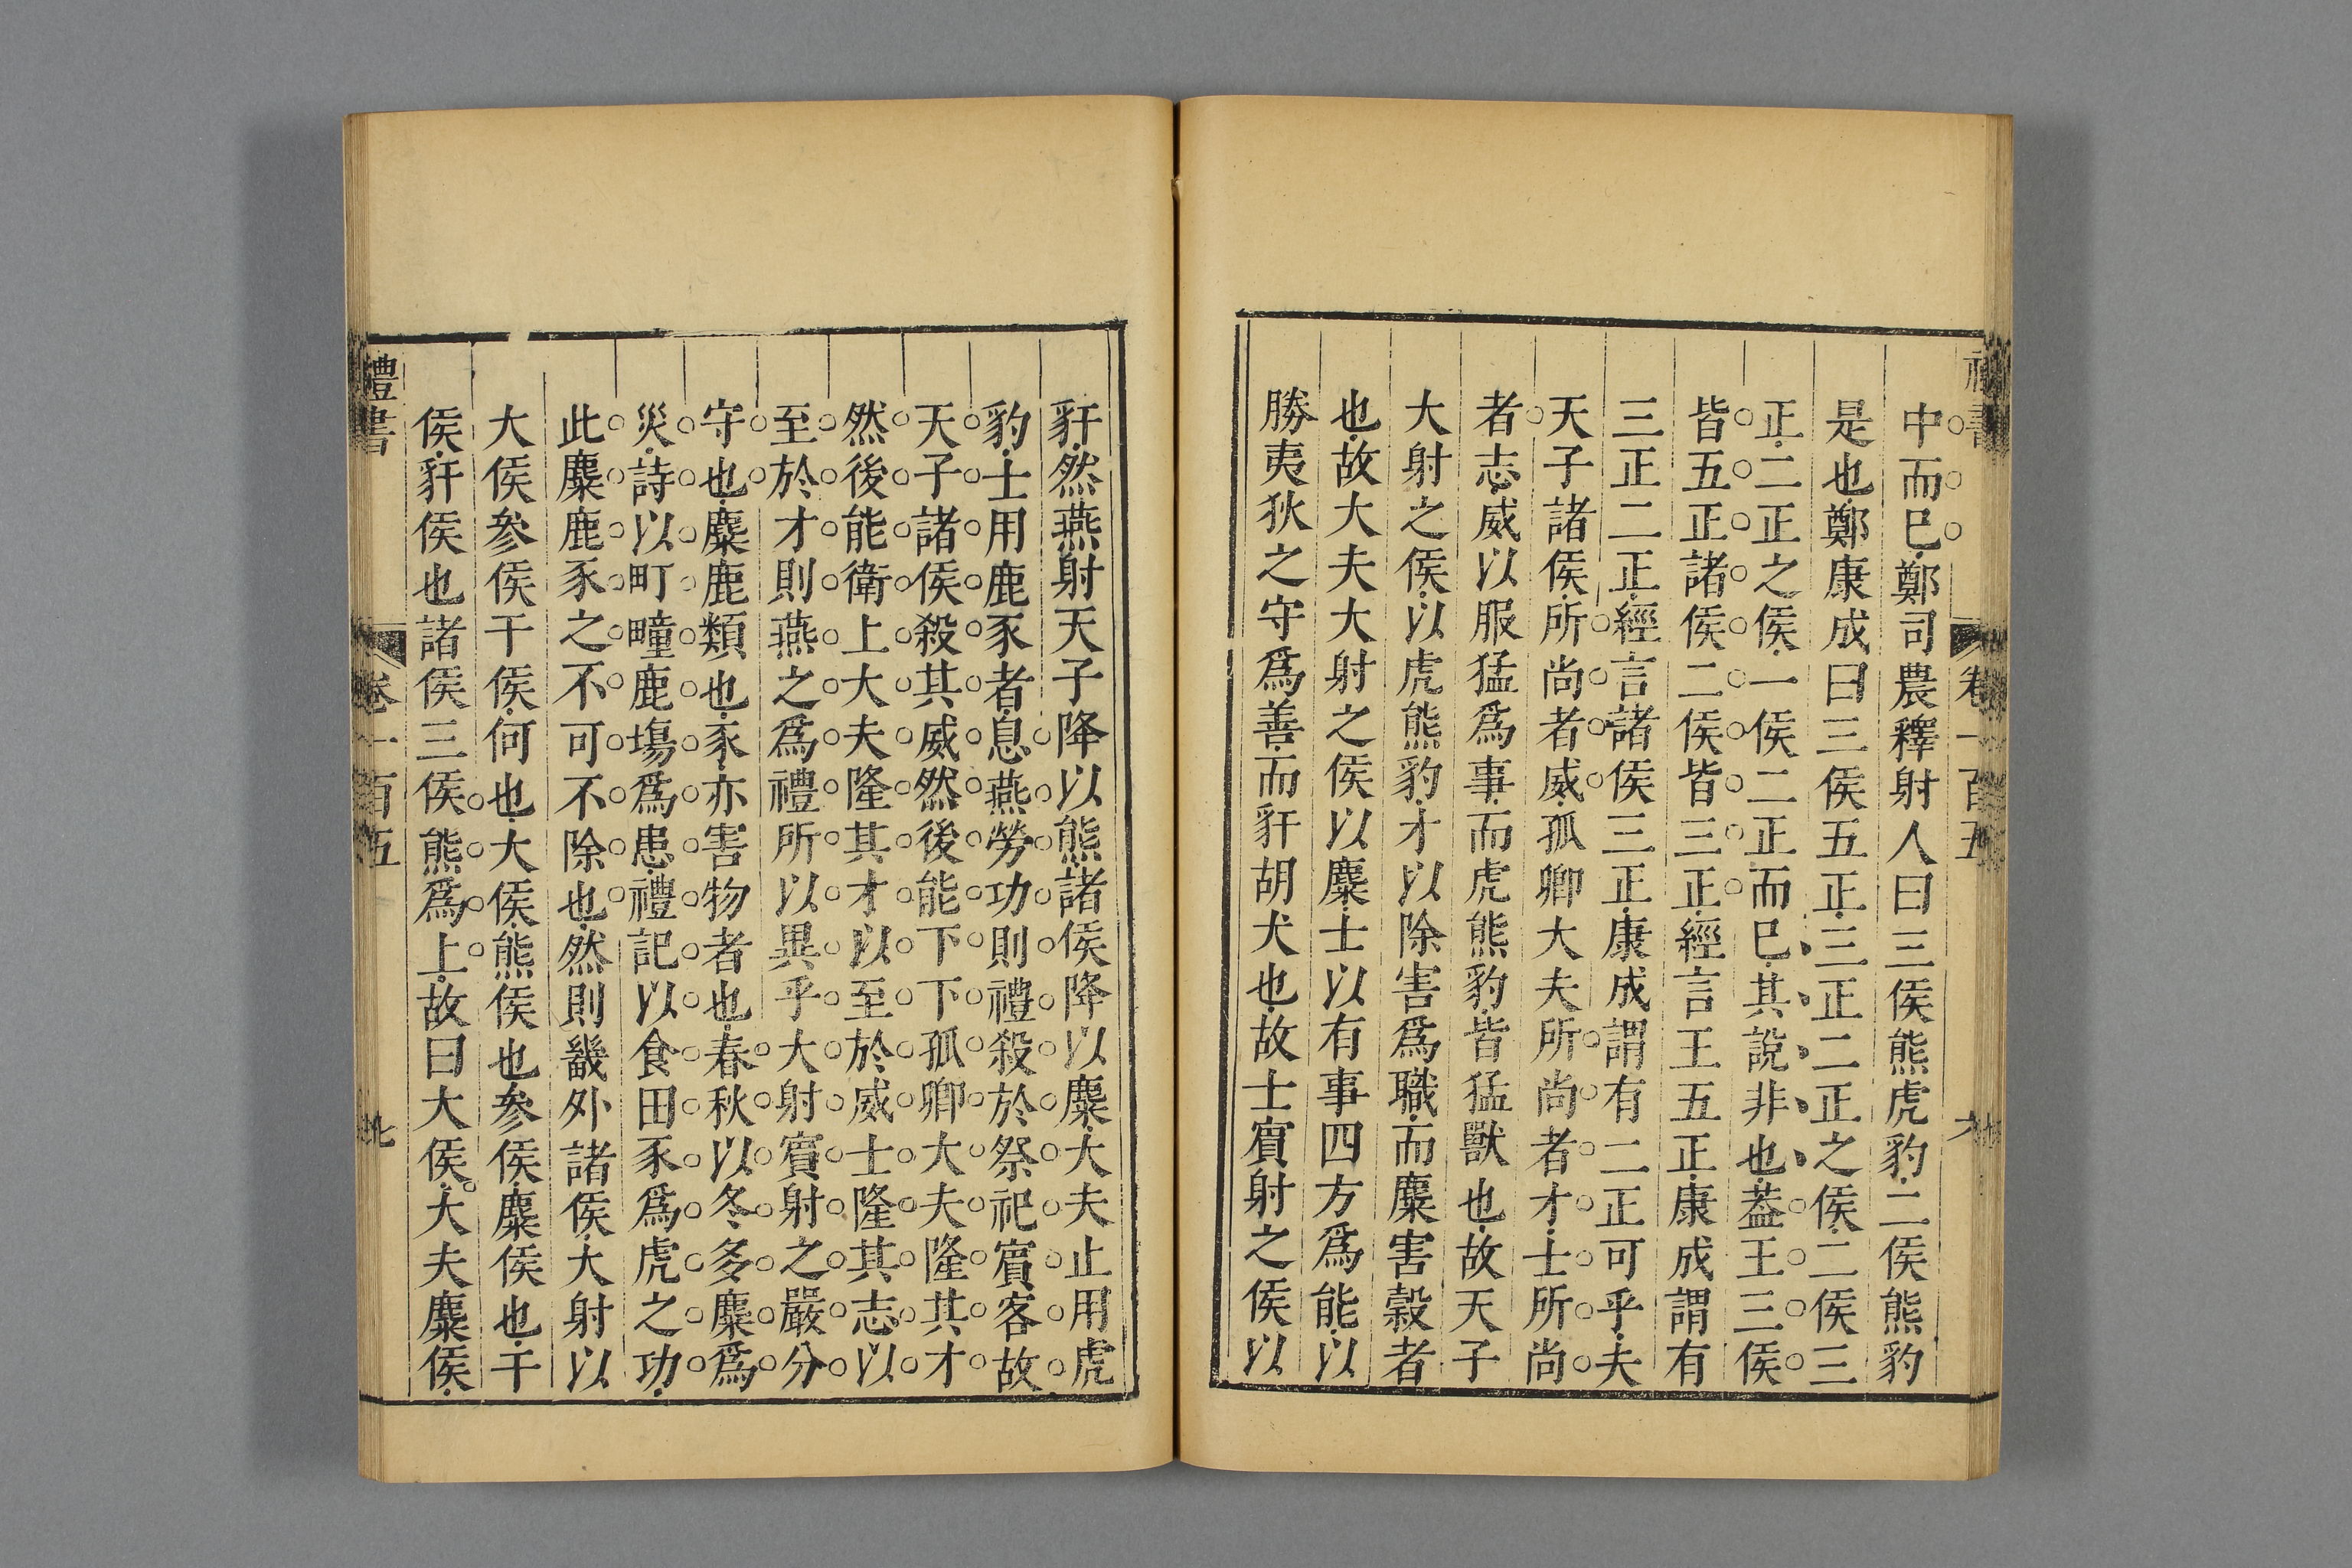 中而已鄭司農釋射人曰三侯熊虎豹二侯熊豹
是也鄭康成曰三侯五正三正二正之侯二侯三
正二正之侯一侯二正而已其說非也葢王三侯
皆五正諸侯二侯皆三正經言王五正康成謂有
三正二正經言諸侯三正康成謂有二正可乎夫
天子諸侯所尚者威孤卿大夫所尚者才士所尚
者志威以服猛爲事而虎熊豹皆猛獸也故天子
大射之侯以虎熊豹才以除害爲職而麋害穀者
也故大夫大射之侯以麋士以有事四方爲能以
勝夷狄之守爲善而豻胡犬也故士賓射之侯以
豻然燕射天子降以熊諸侯降以麋大夫止用虎
豹士用鹿豕者息燕勞功則禮殺於祭祀賓客故
天子諸侯殺其威然後能下下孤卿大夫隆其才
然後能衛上大夫隆其才以至於威士隆其志以
至於才則燕之爲禮所以異乎大射賓射之嚴分
守也麋鹿類也豕亦害物者也春秋以冬多麋爲
災詩以町疃鹿場爲患禮記以食田豕爲虎之功
此麋鹿豕之不可不除也然則畿外諸侯大射以
大侯參侯干侯何也大侯熊侯也參侯麋侯也干
侯豻侯也諸侯三侯熊爲上故曰大侯大夫麋侯
禮書
卷一百五